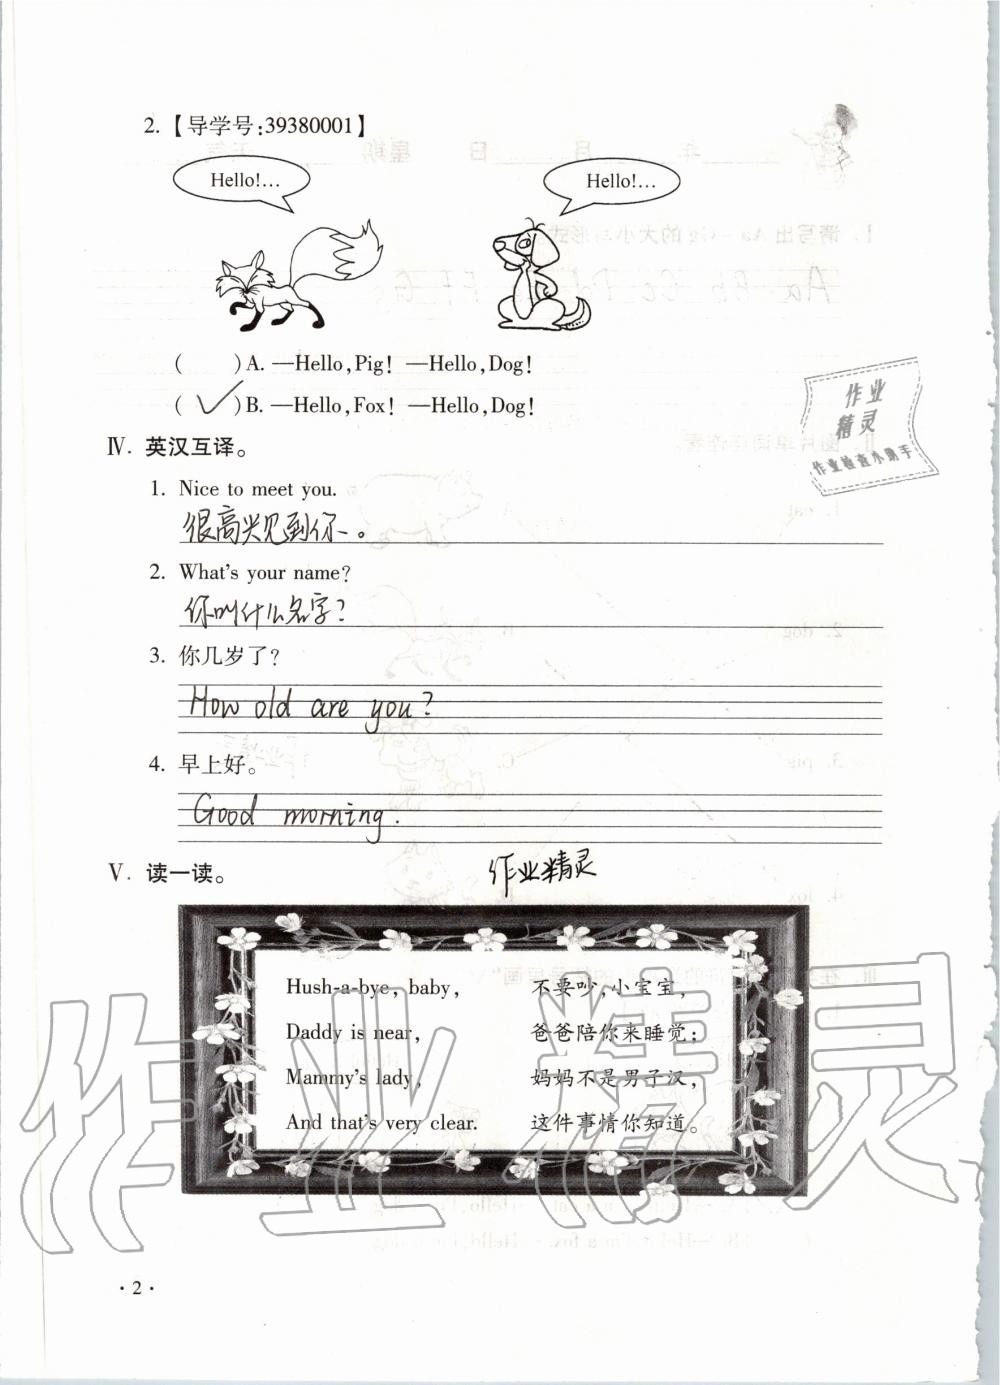 2. 【导学号:39380001】
Hello!… Hello!…
( )A. —Hello, Pig! —Hello, Dog!
( ✓ )B. —Hello, Fox! —Hello, Dog!
Ⅳ. 英汉互译。
1. Nice to meet you.
很高兴见到你。
2. What's your name?
你叫什么名字?
3. 你几岁了?
How old are you?
4. 早上好。
Good morning.
Ⅴ. 读一读。
作业精灵
Hush-a-bye, baby, 不要吵,小宝宝,
Daddy is near, 爸爸陪你来睡觉;
Mammy's lady, 妈妈不是男子汉,
And that's very clear. 这件事情你知道。
· 2 ·
作业
精灵
作业检查小助手
作业精灵